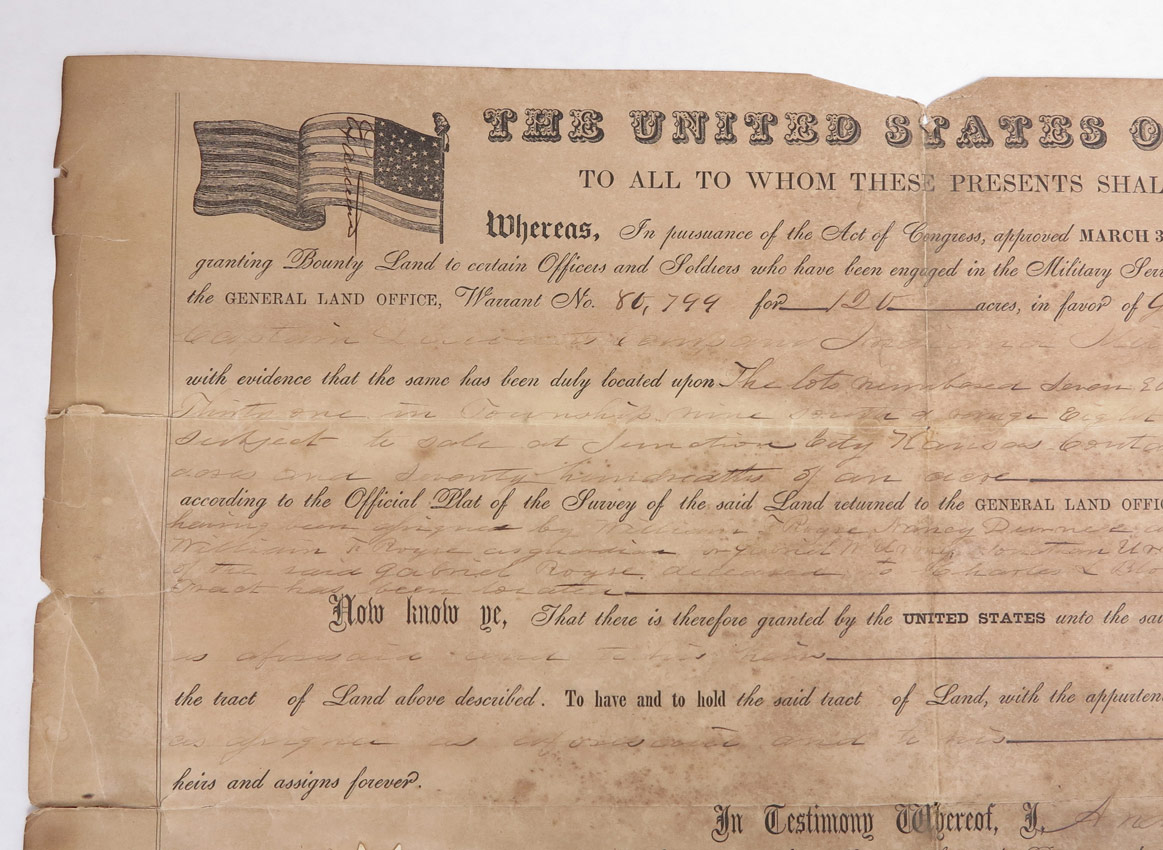 THE UNITED STATES O
TO ALL TO WHOM THESE PRESENTS SHAL
Whereas, In pursuance of the Act of Congress, approved MARCH 3
granting Bounty Land to certain Officers and Soldiers who have been engaged in the Military Ser
the GENERAL LAND OFFICE, Warrant No. 80,799 for 120 acres, in favor of G
Captain
with evidence that the same has been duly located upon The lots numbered Seven
Thirty one in Township nine South of range Eight
subject to sale at Junction City Kansas Conta
acres and Seventy hundredths of an acre
according to the Official Plat of the Survey of the said Land returned to the GENERAL LAND OFFIC
having been assigned by William F Royse Nancy
William F Royse as guardian
of the said Gabriel Royse deceased to Charles L
Tract has been located
Now know ye, That there is therefore granted by the UNITED STATES unto the sai
as aforesaid and to his heirs
the tract of Land above described. To have and to hold the said tract of Land, with the appurten
as assignee as aforesaid and to his
heirs and assigns forever.
In Testimony Whereof, I, And